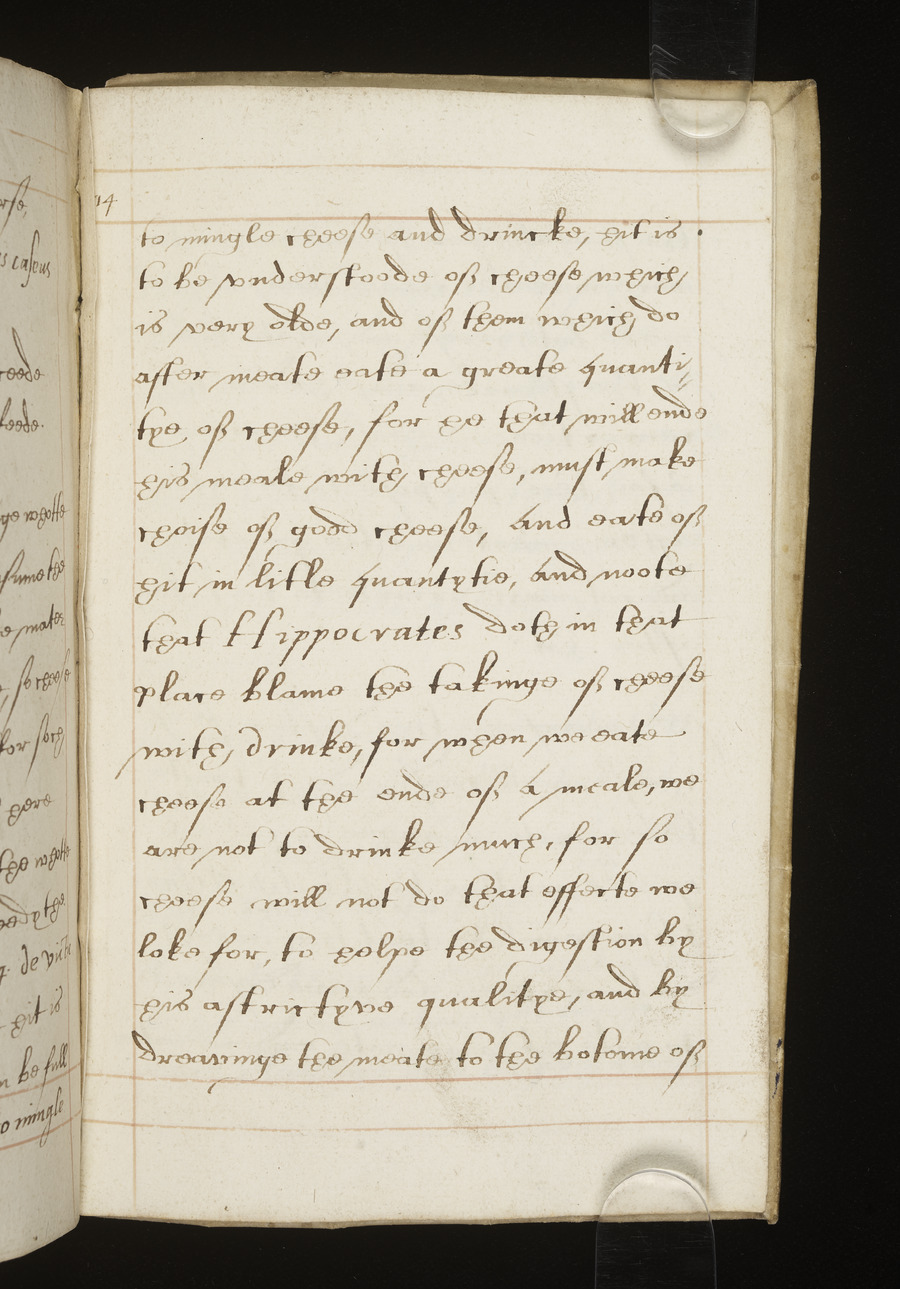 rse,
s caseus
ceede
seede.
ge whotte
sume the
e mater
, so cheese
for soch
here
the whotte
eedy the
q. de vict
hit is
n be full
o mingle
14
to mingle cheese and drincke, hit is .
to be vnderstoode of cheese which
is very olde, and of them which do
after meate eate a greate quanti=
tye of cheese, for he that will ende
his meale with cheese, must make
choise of good cheese, and eate of
hit in litle quantytie, and noote
that Hippocrates doth in that
place blame the takinge of cheese
with drinke, for when we eate
cheese at the ende of a meale, we
are not to drinke much, for so
cheese will not do that effecte we
loke for, to helpe the digestion by
his astrictyve qualitye, and by
dreavinge the meate to the botome of